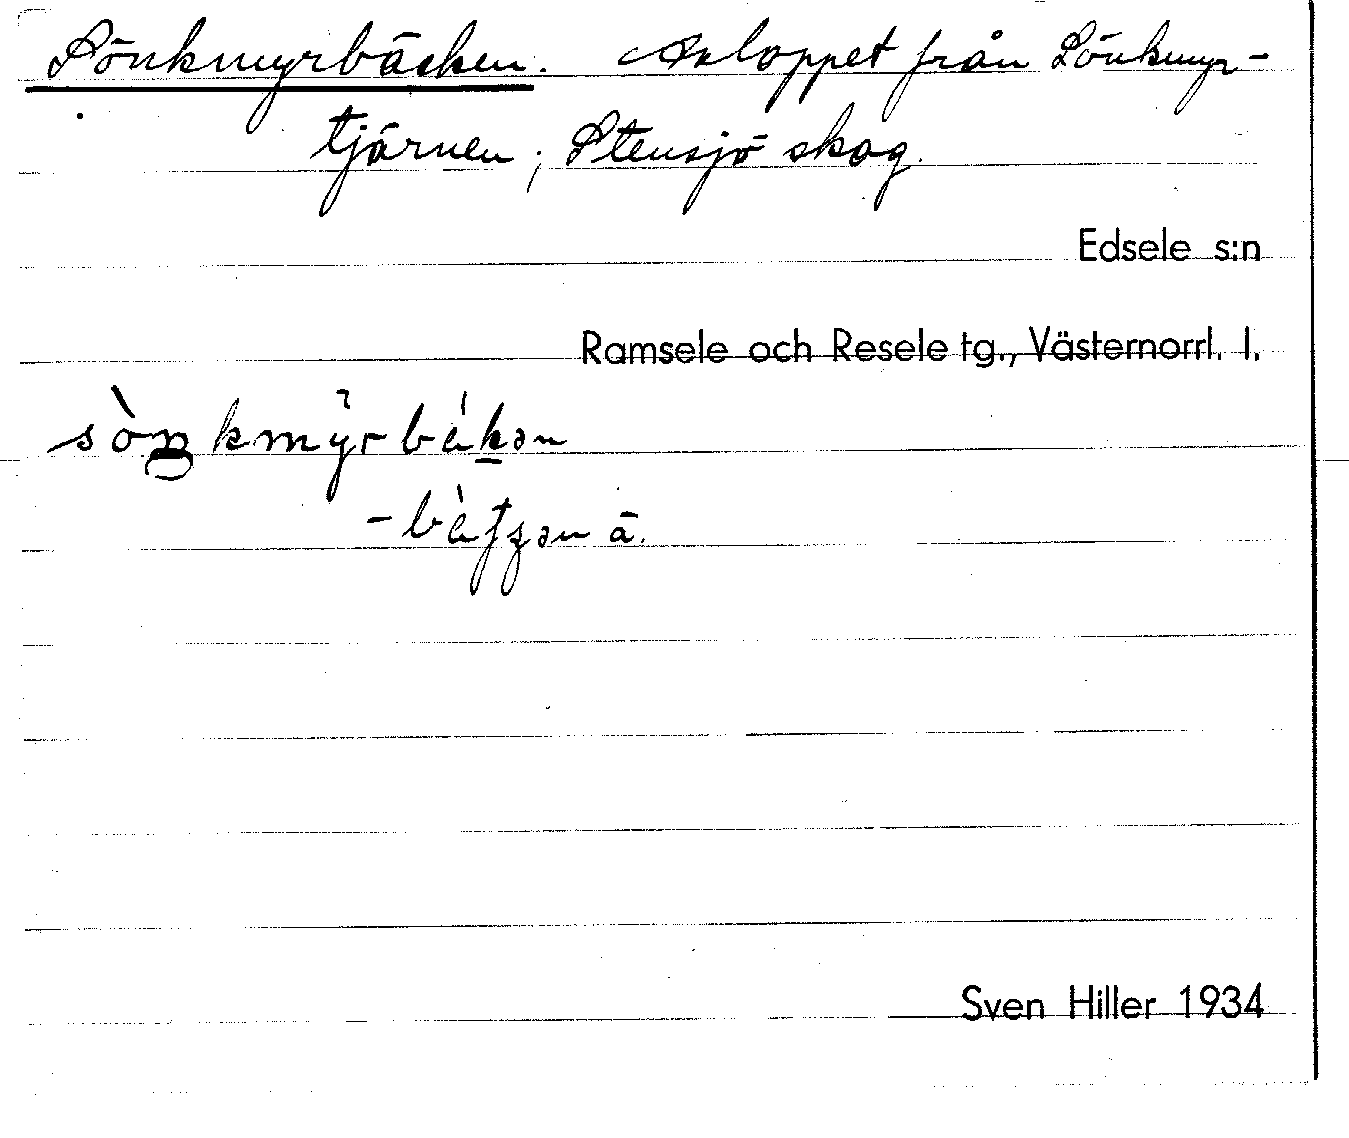 Sönkmyrbäcken. Avloppet från Sönkmyr-
tjärnen; Stensjö skog.
Edsele s:n
Ramsele och Resele tg., Västernorrl. l.
sòŋkmy̆rbákən
- ä.
Sven Hiller 1934